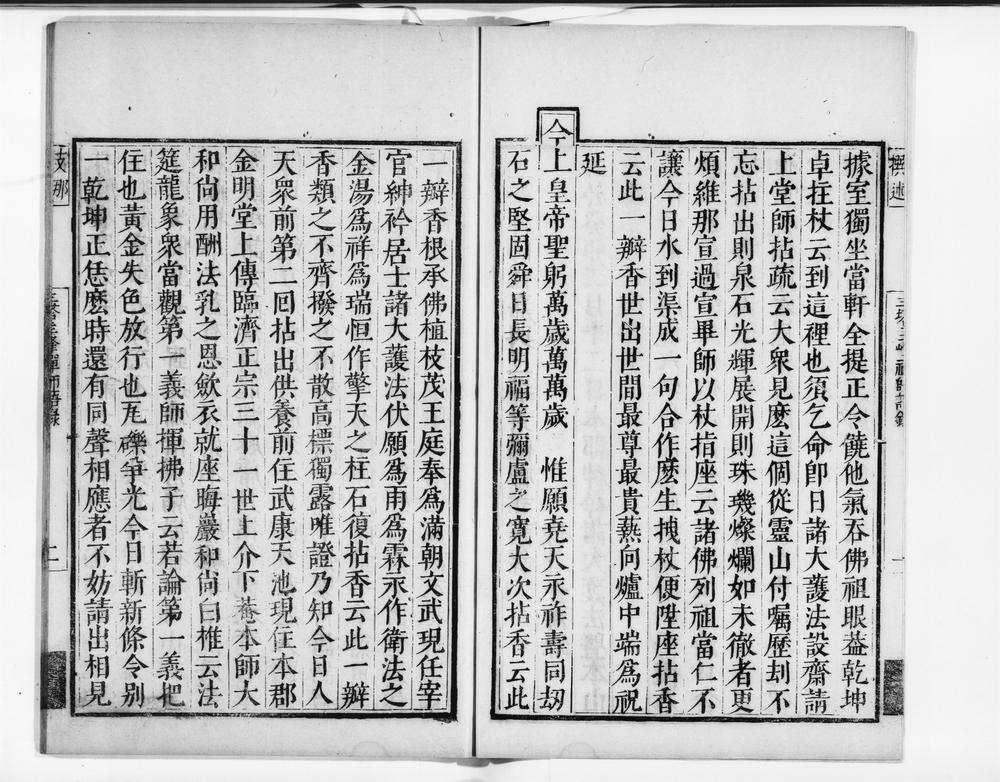 據室獨坐當軒全提正令饒他氣吞佛祖眼葢乾坤
卓拄杖云到這裡也須乞命卽日諸大護法設齋請
上堂師拈疏云大衆見麽這個從靈山付囑歷刦不
忘拈出則泉石光輝展開則珠璣燦爛如未徹者更
煩維那宣過宣畢師以杖指座云諸佛列祖當仁不
讓今日水到渠成一句合作麽生拽杖便陞座拈香
云此一瓣香世出世間最尊最貴爇向爐中端爲祝
延
今上皇帝聖躬萬歲萬萬歲　惟願堯天永祚壽同刼
石之堅固舜日長明福等彌盧之寬大次拈香云此
一瓣香根承佛植枝茂王庭奉爲滿朝文武現任宰
官紳衿居士諸大護法伏願爲雨爲霖永作衛法之
金湯爲祥爲瑞恒作擎天之柱石復拈香云此一瓣
香類之不齊撥之不散高標獨露唯證乃知今日人
天衆前第二囘拈出供養前住武康天池現住本郡
金明堂上傳臨濟正宗三十一世上介下菴本師大
和尚用酬法乳之恩歛衣就座晦巖和尚白椎云法
筵龍象衆當觀第一義師揮拂子云若論第一義把
住也黃金失色放行也瓦礫爭光今日斬新條令別
一乾坤正恁麽時還有同聲相應者不妨請出相見